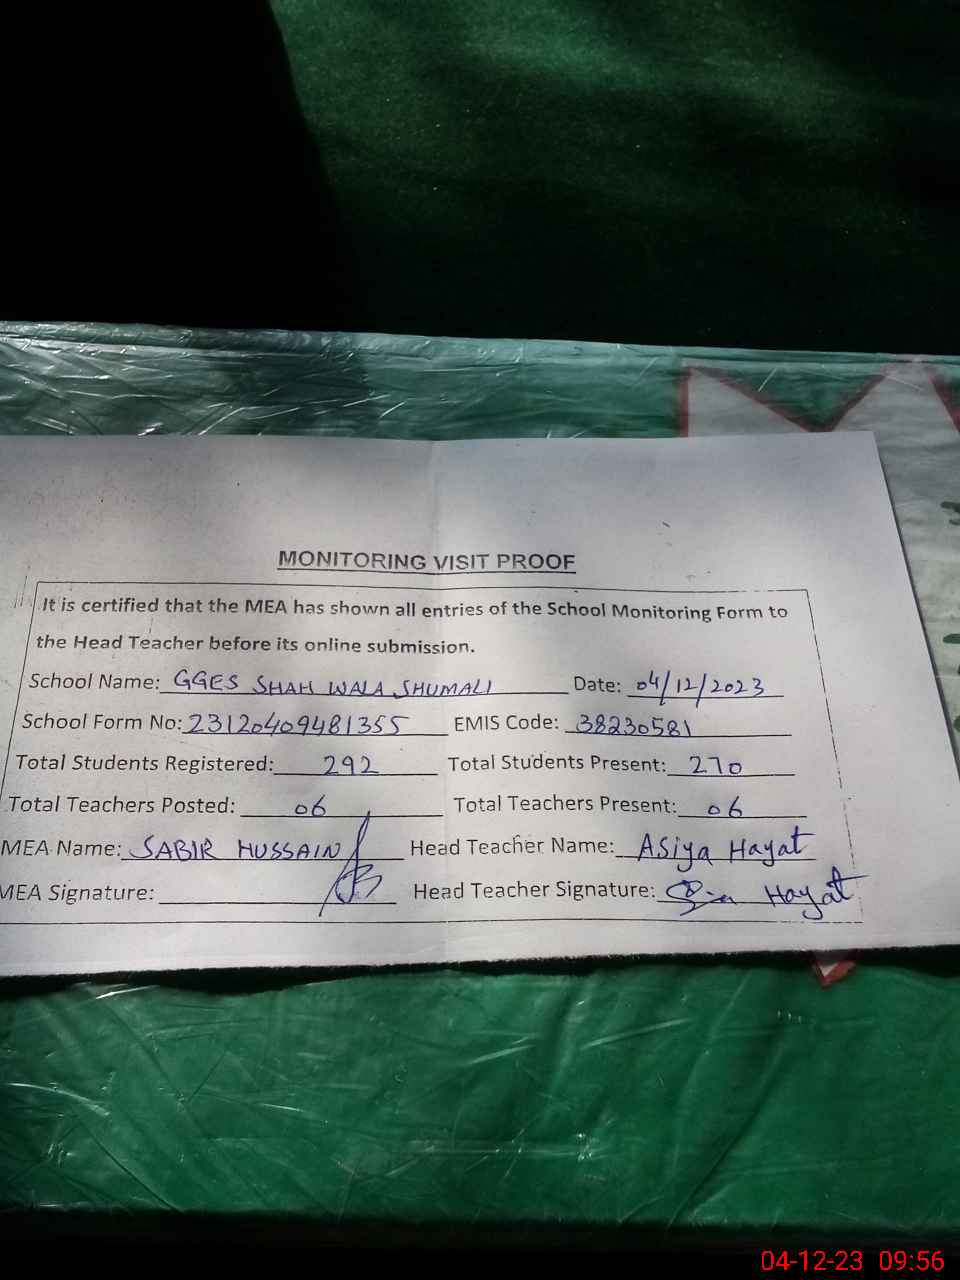 MONITORING VISIT PROOF
It is certified that the MEA has shown all entries of the School Monitoring Form to
the Head Teacher before its online submission.
School Name: GGES SHAH WALA SHUMALI Date: 04/12/2023
School Form No: 23120409481355 EMIS Code: 38230581
Total Students Registered: 292 Total Students Present: 270
Total Teachers Posted: 06 Total Teachers Present: 06
MEA Name: SABIR HUSSAIN Head Teacher Name: Asiya Hayat
MEA Signature: Head Teacher Signature: Hayat
04-12-23 09:56